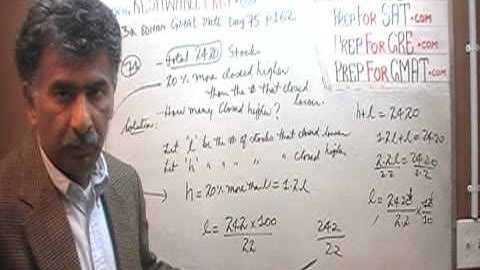 3rd Edition GMAT Math Long 75 p162
PREP FOR SAT.com
PREP FOR GRE.com
PREP FOR GMAT.com
Total 2420 Stocks
20% more closed higher
than the # that closed
lower.
How many closed higher?
Solution:
Let 'l' be the # of stocks that closed lower
Let 'h' " " " " " closed higher
h = 20% more than l = 1.2l
l = 242 x 100
22
242
22
h+l = 2420
1.2l+l = 2420
2.2l = 2420
2.2 2.2